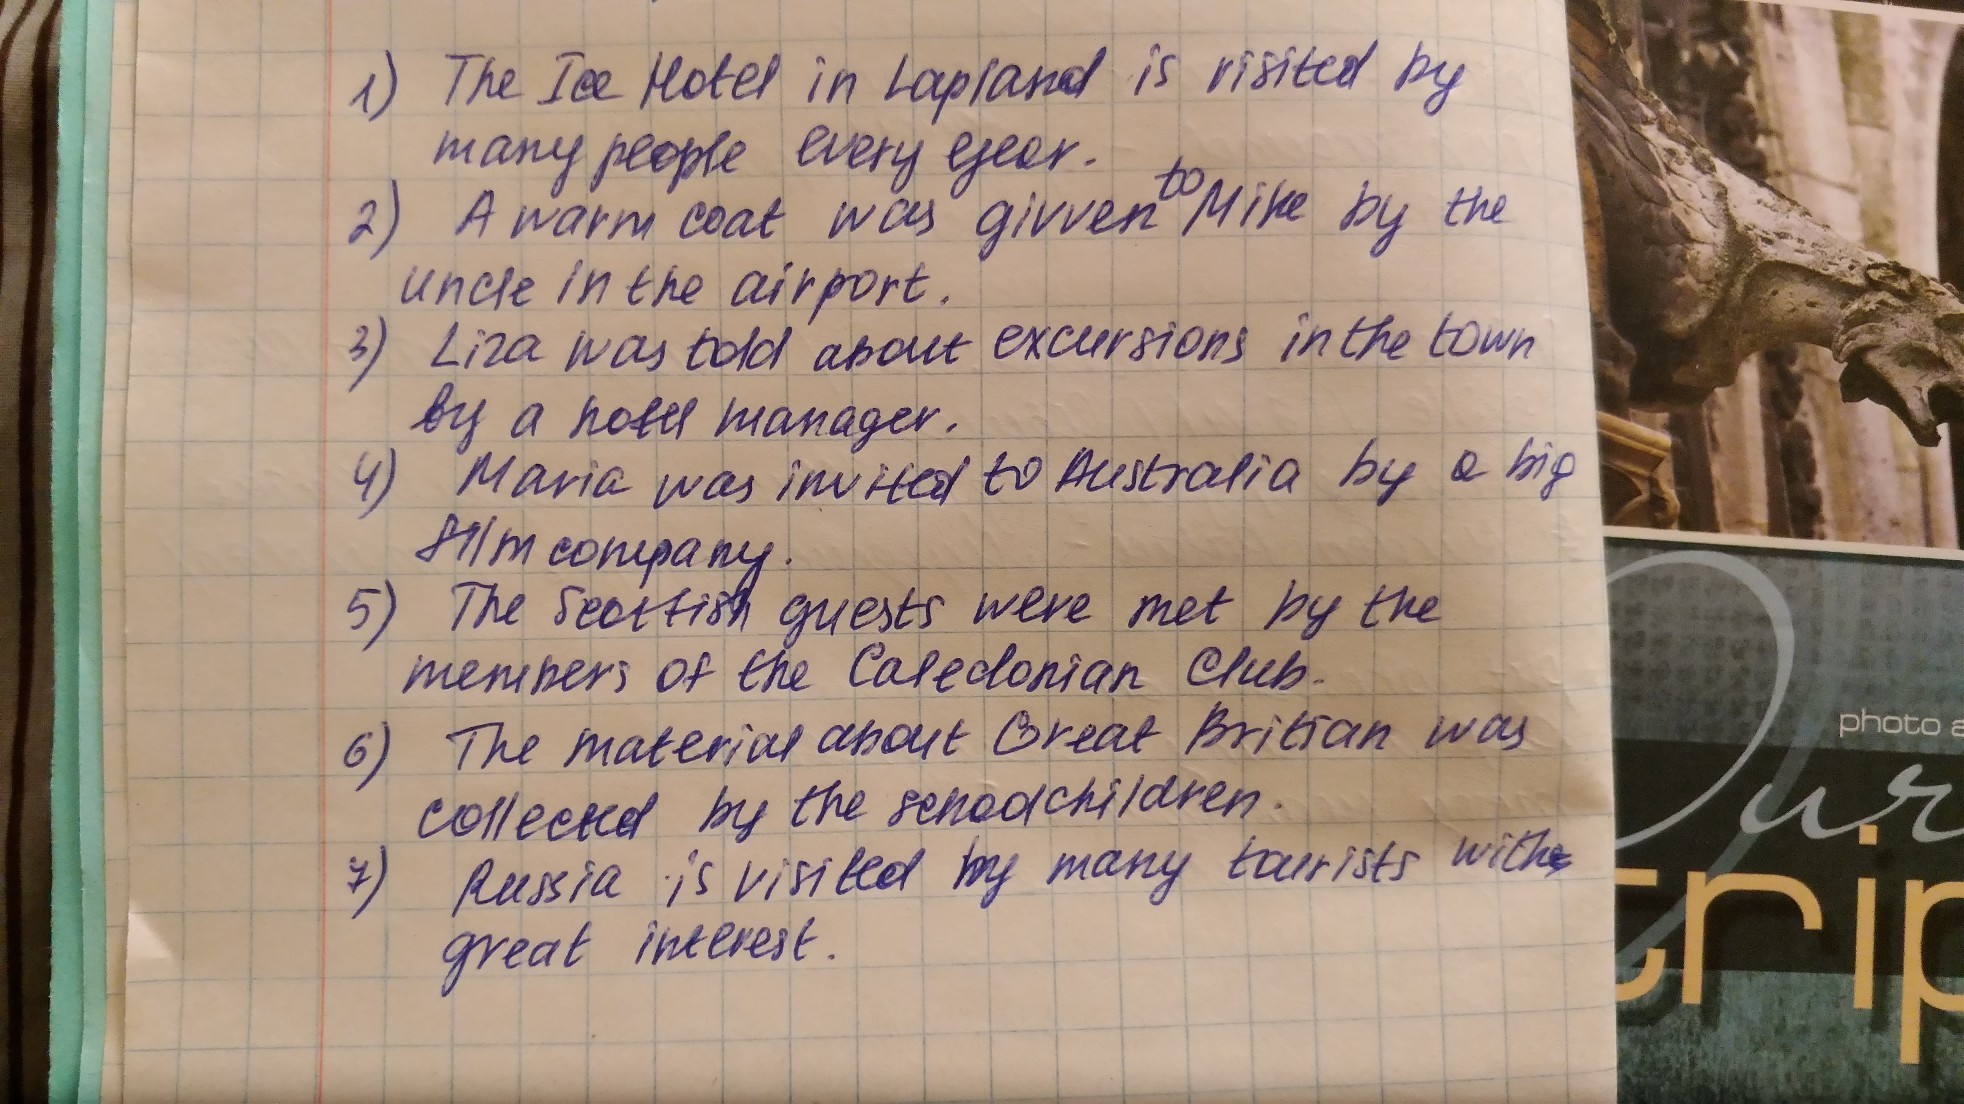 1) The Ice Hotel in Lapland is visited by
many people every year.
2) A warm coat was givven to Mike by the
uncle in the airport.
3) Liza was told about excursions in the town
by a hotel manager.
4) Maria was invited to Australia by a big
film company.
5) The Scottish guests were met by the
members of the Caledonian Club.
6) The material about Great Britian was
collected by the schoolchildren.
7) Russia is visited by many tourists with
great interest.
photo a
Our
trip